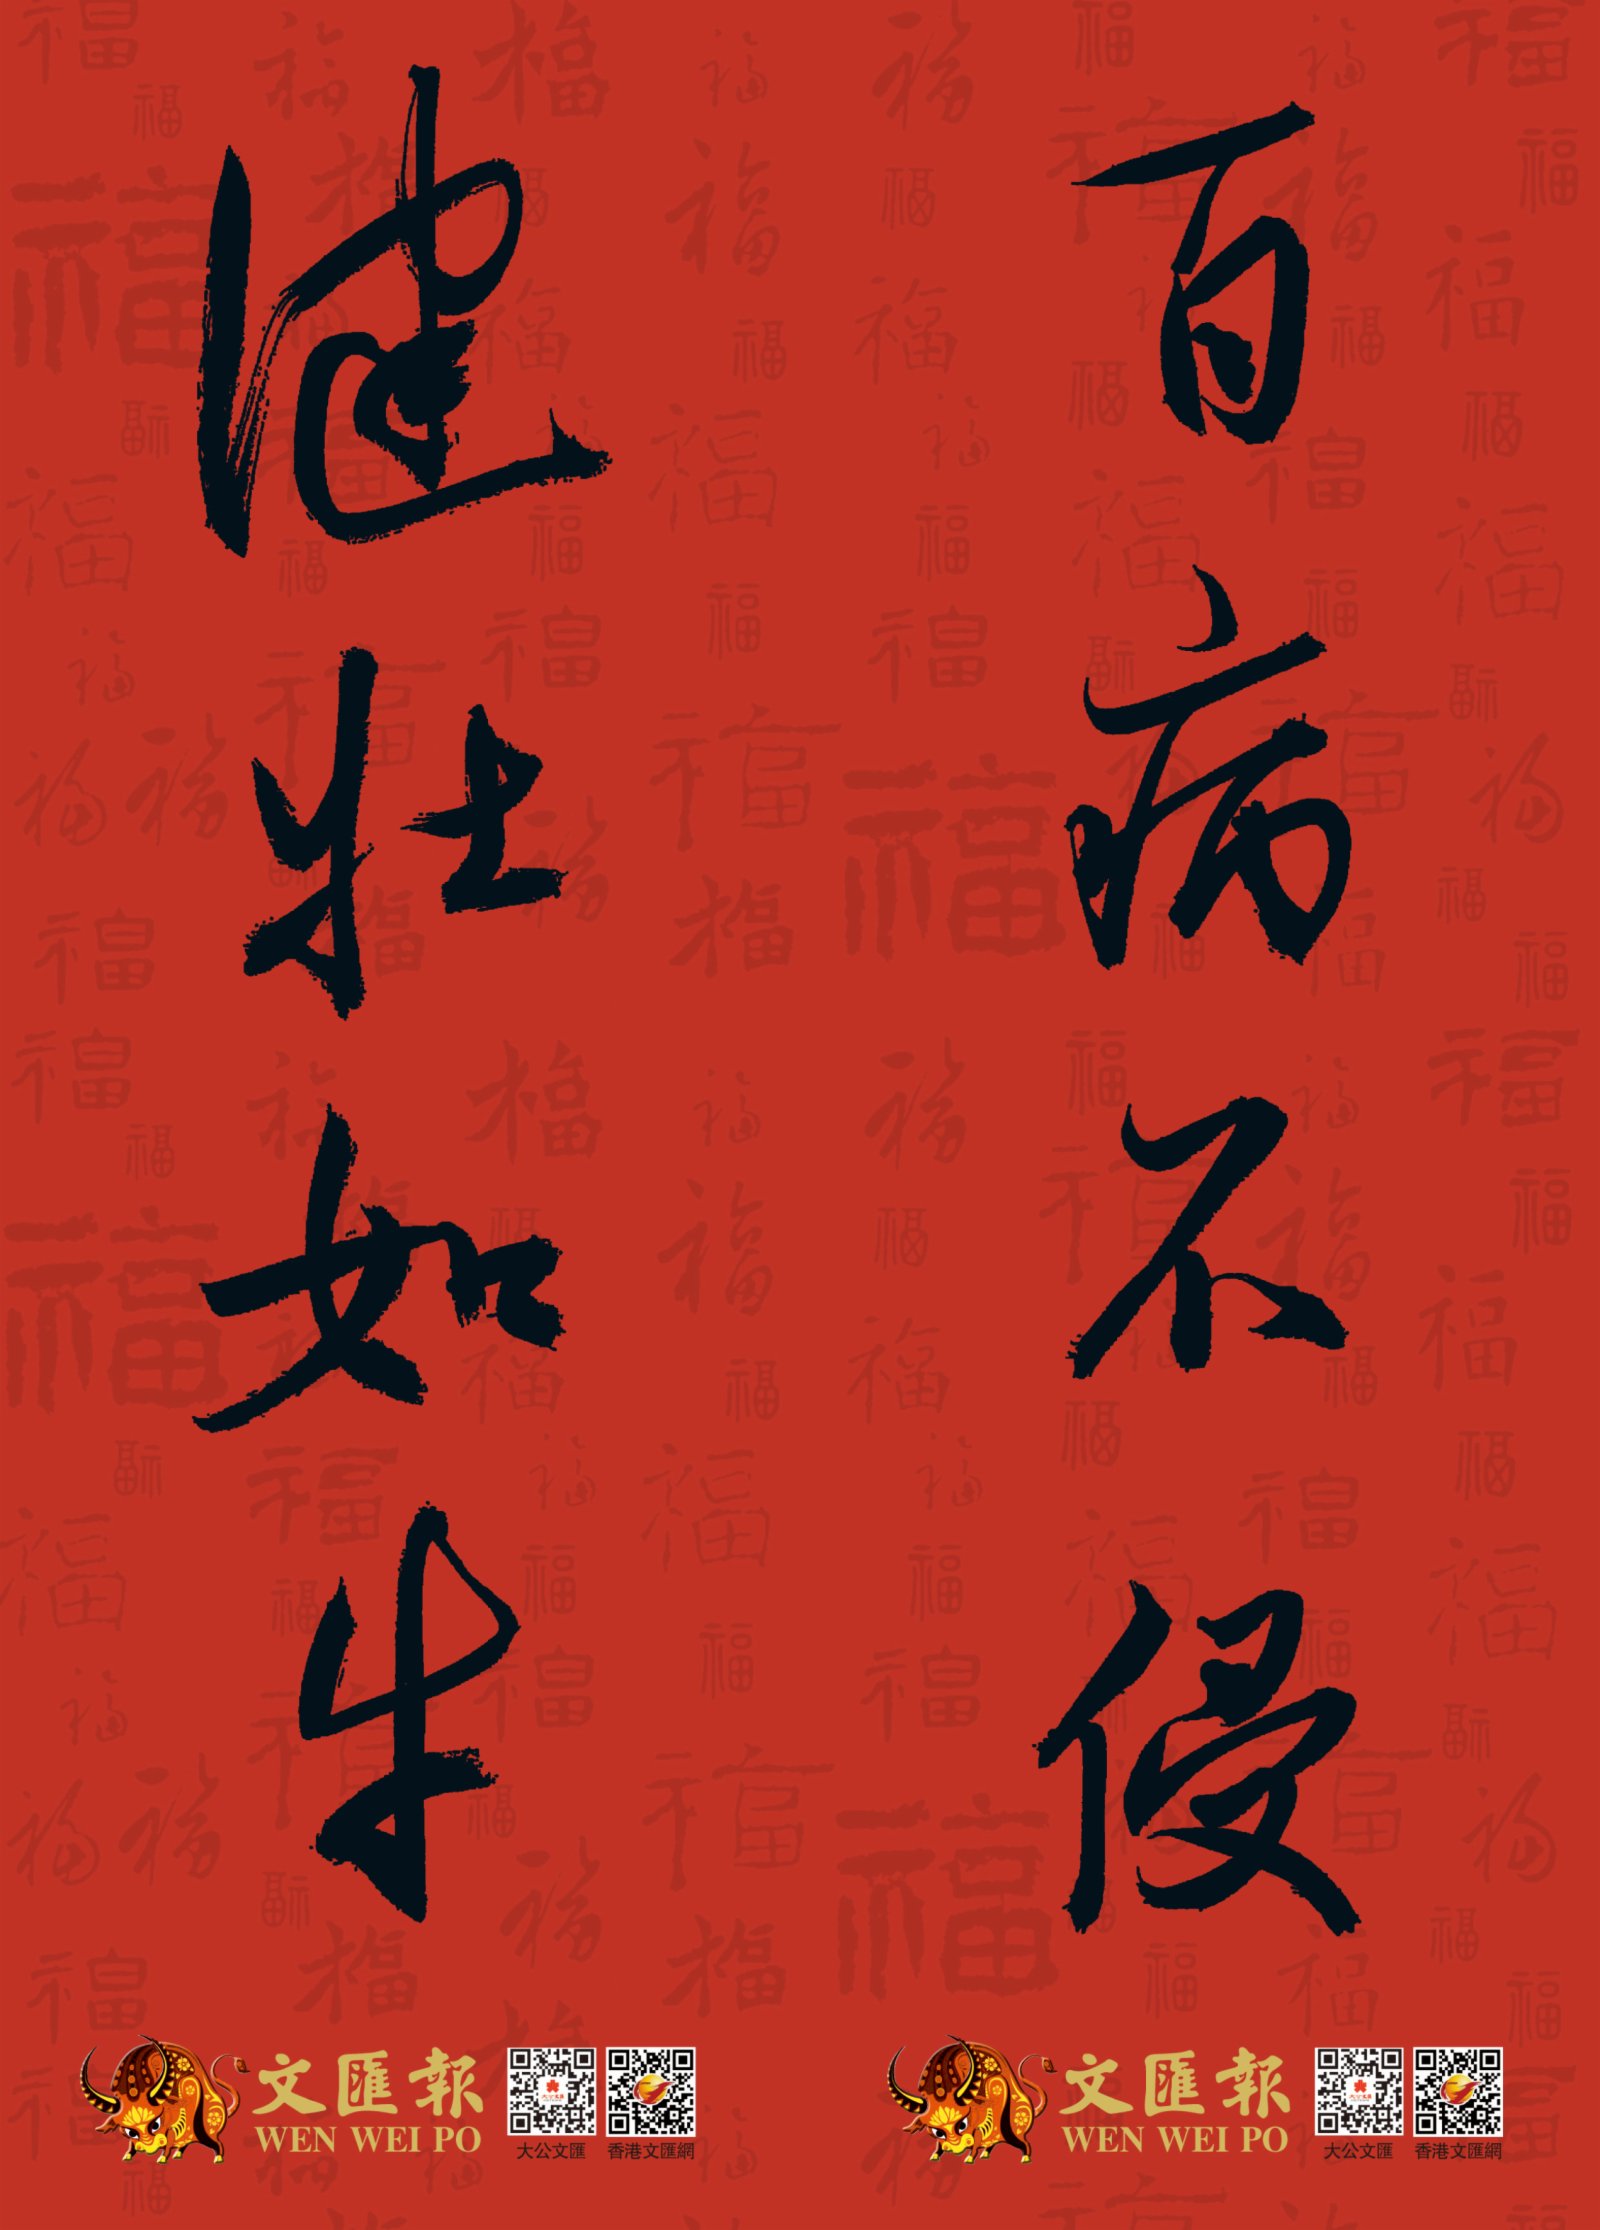 百病不侵
健壯如牛
文匯報
WEN WEI PO
大公文匯
香港文匯網
文匯報
WEN WEI PO
大公文匯
香港文匯網